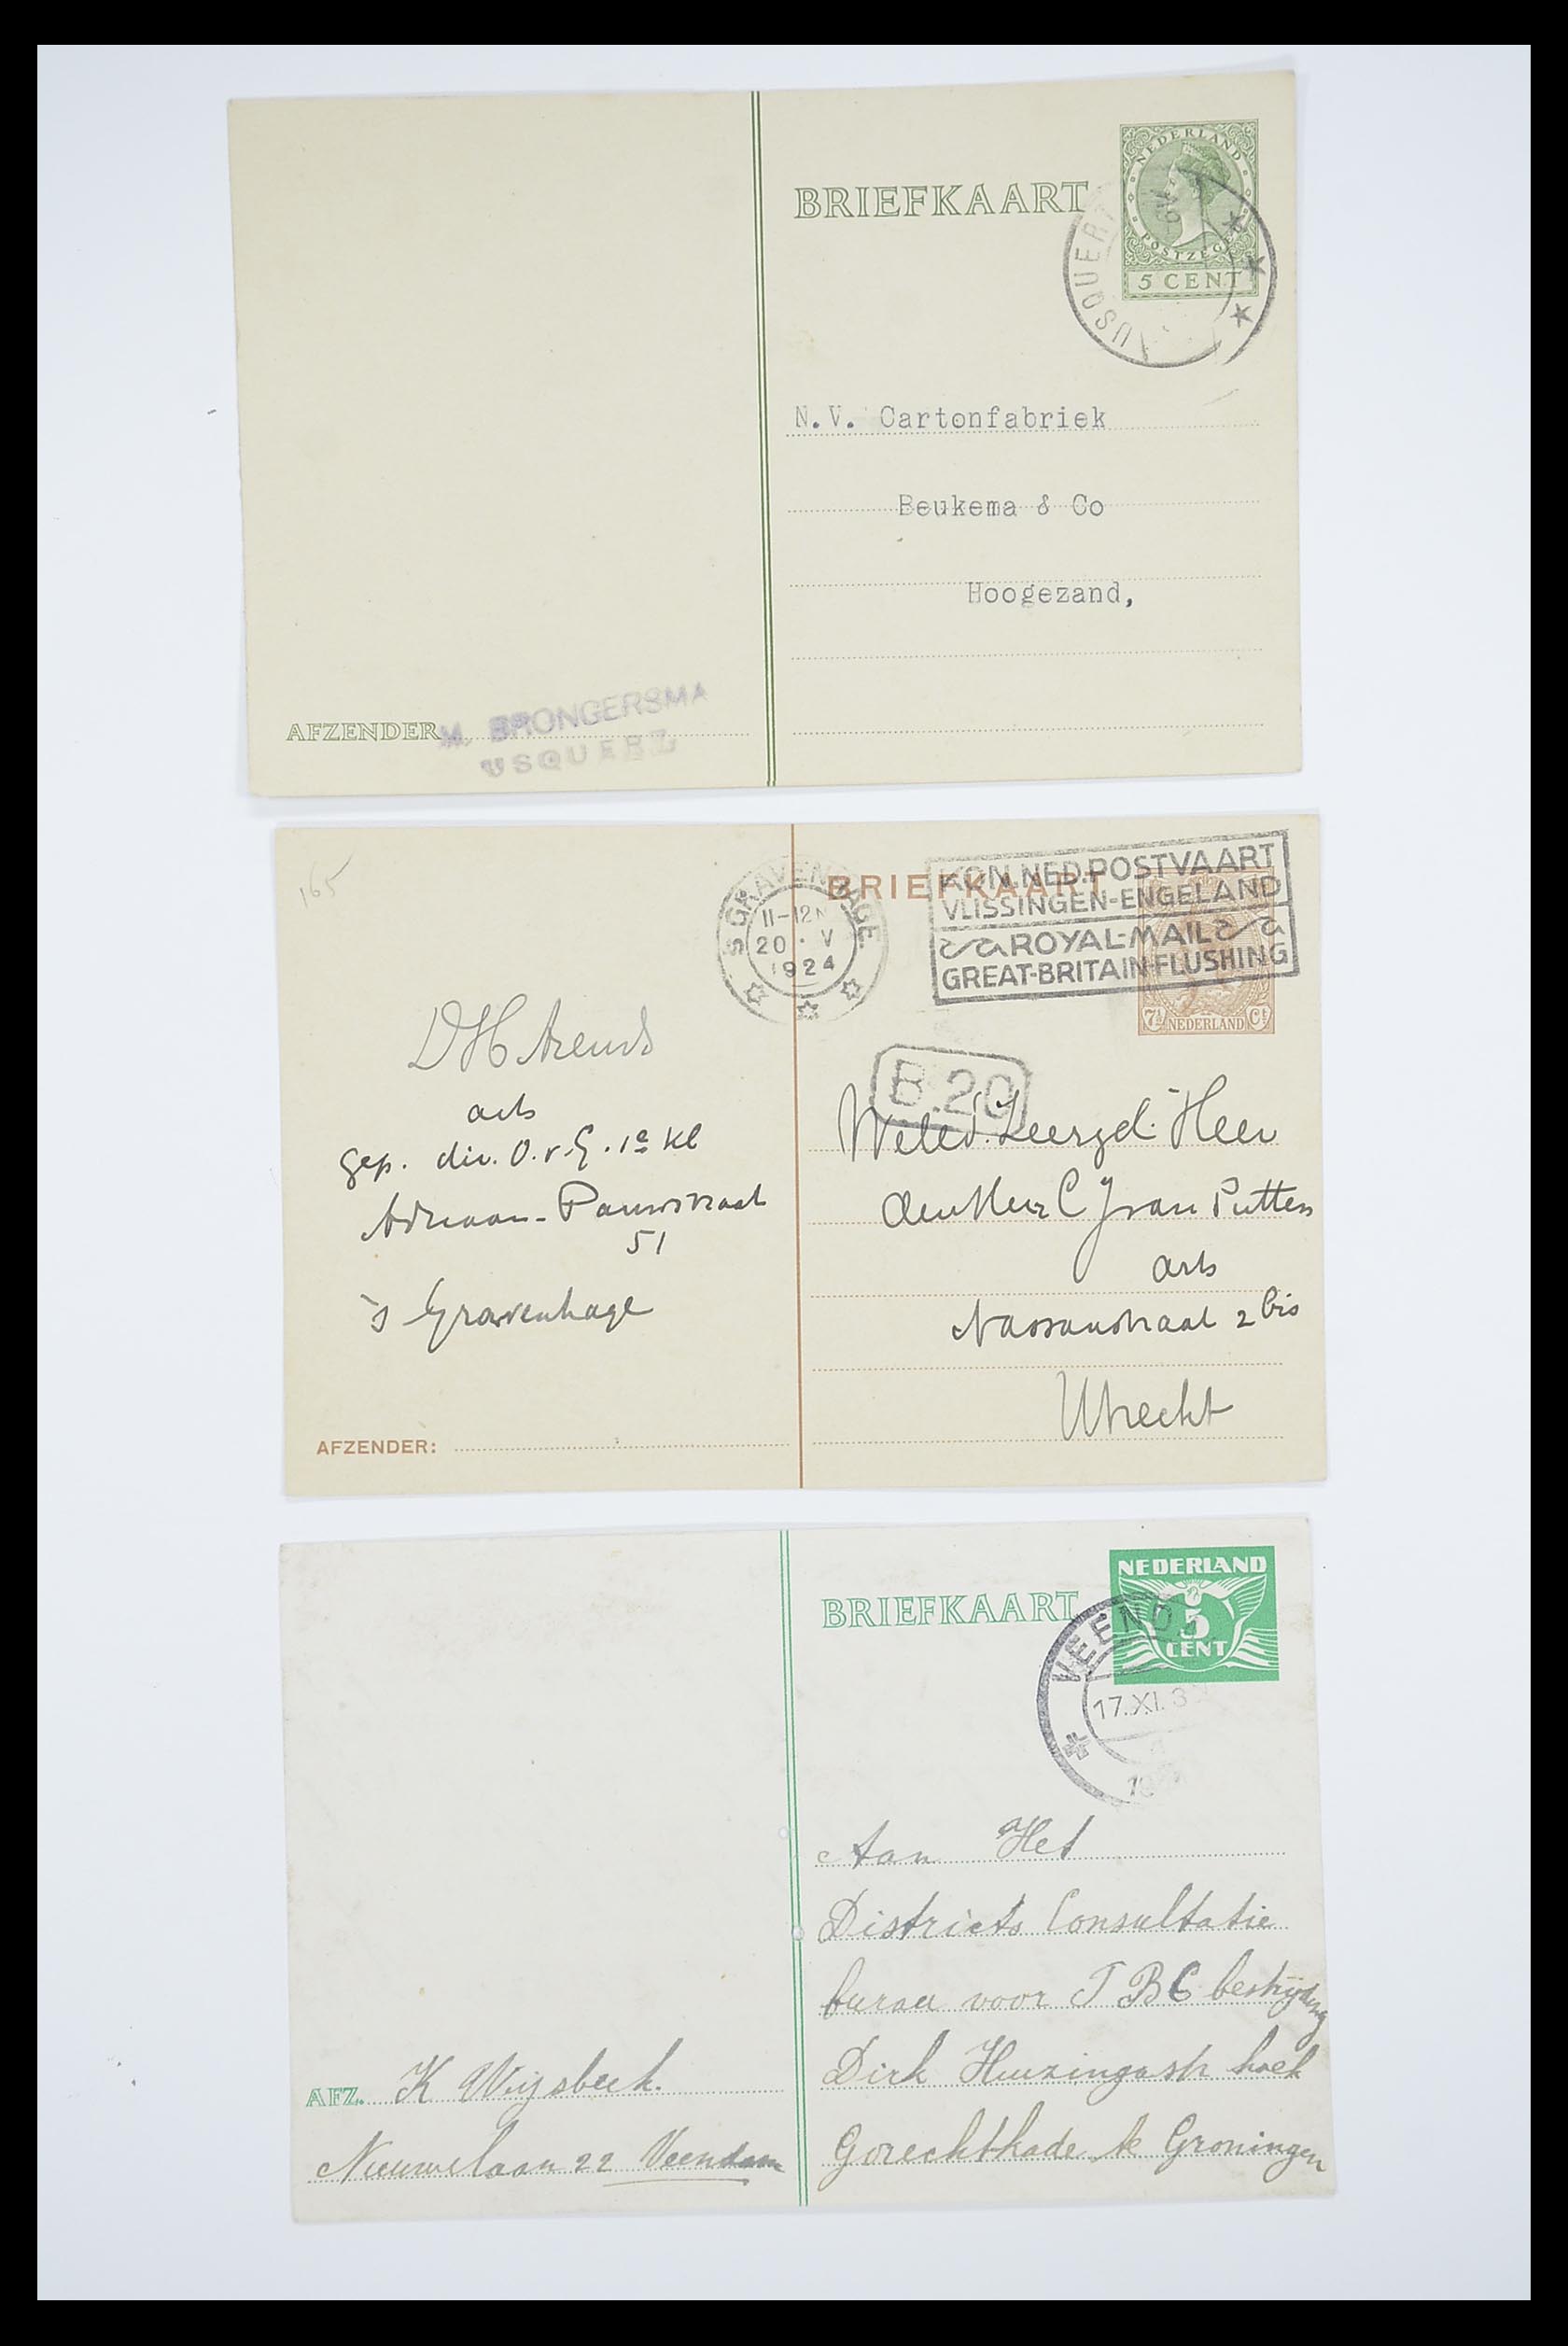 BRIEFKAART
NEDERLAND
POSTZEGEL
5 CENT
USQUERT
N.V. Cartonfabriek
Beukema & Co
Hoogezand,
AFZENDER
M. BRONGERSMA
USQUERT
165
'S GRAVENHAGE.
11-12N
20 . V
1924
BRIEFKAART
KON. NED. POSTVAART
VLISSINGEN-ENGELAND
ROYAL-MAIL
GREAT-BRITAIN-FLUSHING
7½ NEDERLAND Ct
B.20
DH Arends
arts
gep. div. O.v.G. 1e Kl
Adriaan-Pauwstraat
51
's Gravenhage
AFZENDER:
Weled. Zeergel. Heer
den Heer C J van Putten
arts
Nassaustraat 2 bis
Utrecht
BRIEFKAART
NEDERLAND
5
CENT
VEEND
17.XI.3
Aan Het
Districts Consultatie
bureau voor T B C bestrijding
Dirk Huizingastr hoek
Gorechtkade te Groningen
AFZ. K Wijsbeek.
Nieuwelaan 22 Veendam